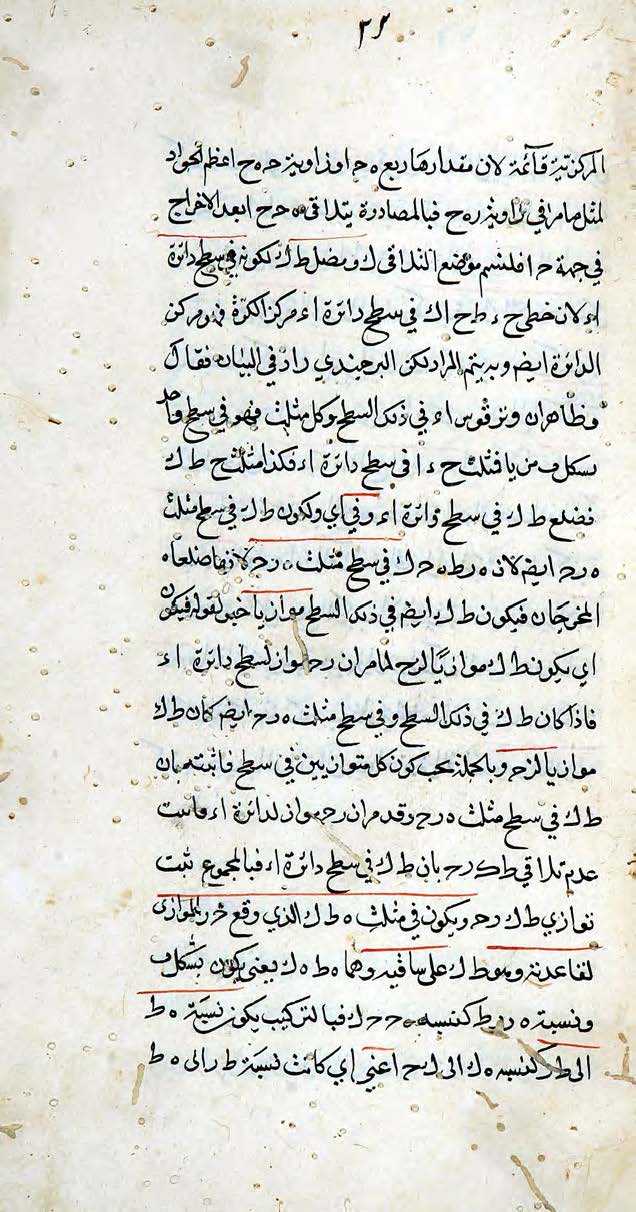 ٢٦
المركزية قائمة لان مقدارها ربع ه ح ا وزاوية ح ه ح اعظم الحواد
لمثل ما مر في زاوية ر ه ح فبالمصادرة يتلاقى ه ح ح ا بعد الاخراج
في جهة ح ا فليسم موضع التلاقى ك ونصل ط ك لكونه في سطح دائرة
ا ء لان خطي ح ء ط ح ا ك في سطح دائرة ا ء مركز الكرة فهو مركز
الدائرة ايضا وبه يتم المراد لكن البرجندي زاد في البيان فقال
وظاهر ان وتر قوس ا ء في ذلك السطح وكل مثلث فهو في سطح واحد
بشكل من يا فمثلث ح ء ا في سطح دائرة ا ء فكذا مثلث ح ط ك
فضلع ط ك في سطح دائرة ا ء وفي اي ولكون ط ك في سطح مثلث
ه ر ح ايضا لان ه ر ط ه ح ك في سطح مثلث ه ر ح لانهما ضلعاه
المخرجان فيكون ط ك ايضا في ذلك السطح موازيا خبر لقوله فيكون
اي يكون ط ك موازيا لرح لما مر ان ر ح مواز لسطح دائرة ا ء
فاذا كان ط ك في ذلك السطح وفي سطح مثلث ه ر ح ايضا كان ط ك
موازيا لرح وبالجملة يجب كون كل متوازيين في سطح فاثبت بان
ط ك في سطح مثلث ه ر ح وقد مر ان ر ح مواز لدائرة ا ء فاثبت
عدم تلاقي ط ك ر ح بان ط ك في سطح دائرة ا ء فبالمجموع ثبت
توازي ط ك ر ح ويكون في مثلث ه ط ك الذي وقع ر ح الموازى
لقاعدته وهو ط ك على ساقيه وهما ه ط ه ك يعني يكون بشكل
ونسبة ه ر ر ط كنسبة ه ح ح ك فبالتركيب يكون نسبة ه ط
الى ط ر كنسبة ه ك الى ك ح اعني اي كانت نسبة ط ر الى ه ط